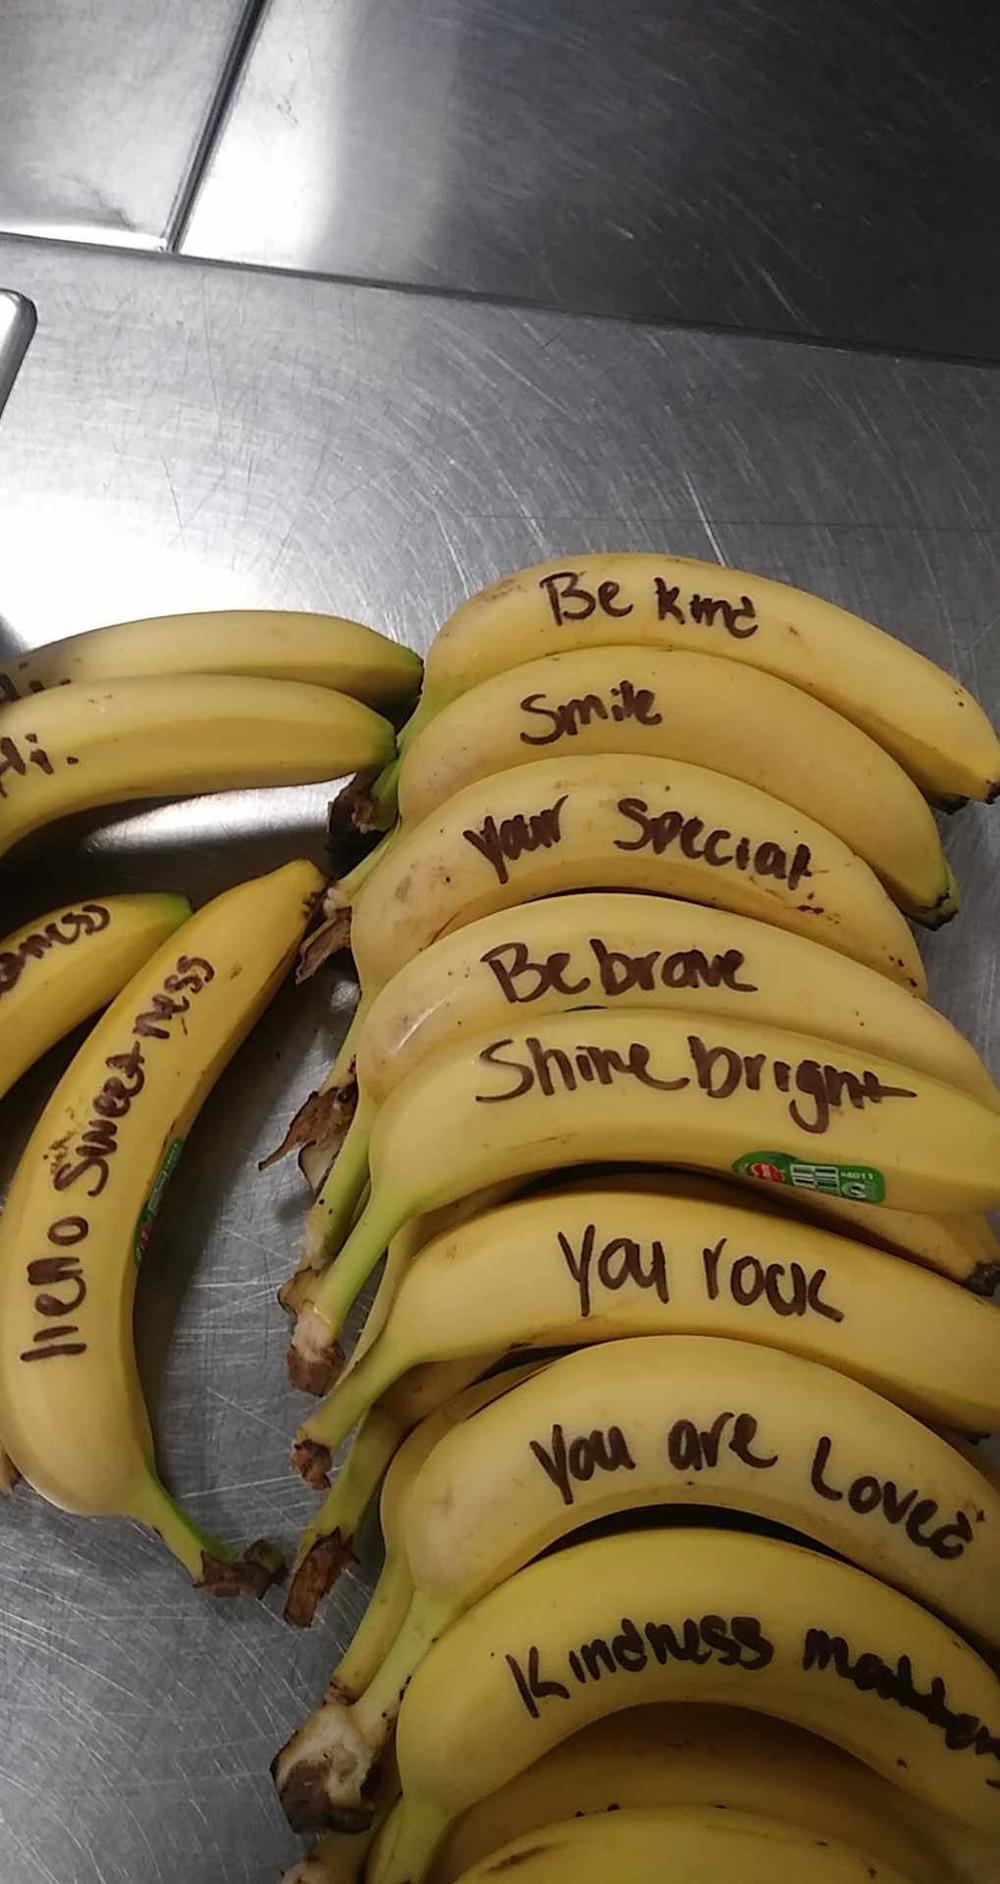 Be kind
Smile
your Special
Be brave
Shine bright
You rock
You are Loved
Kindness matters
Hi.
Hello Sweet-ness
4011